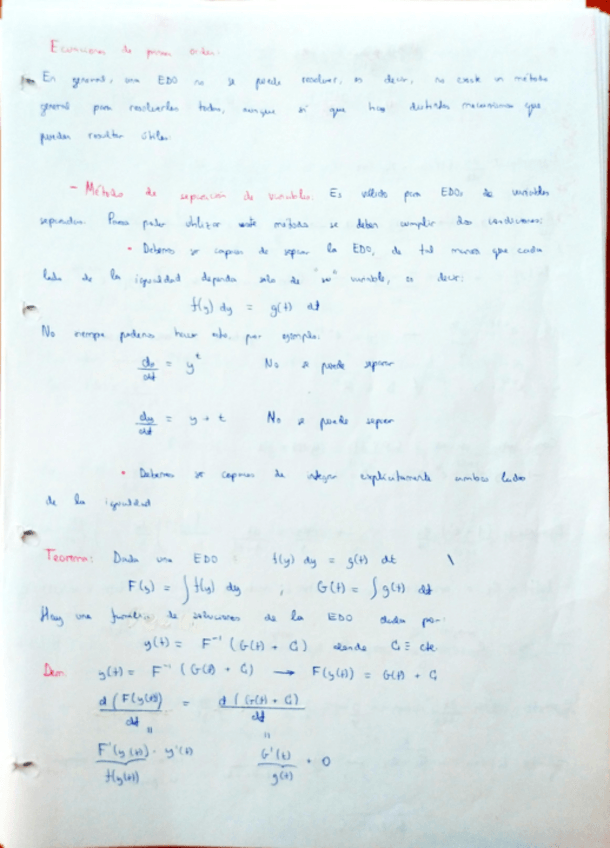 Ecuaciones de primer orden:
En general, una EDO no se puede resolver, es decir, no existe un método
general para resolverlas todas, aunque sí que hay distintos mecanismos que
pueden resultar útiles.
- Método de separación de variables: Es válido para EDOs de variables
separadas. Para poder utilizar este método se deben cumplir dos condiciones:
• Debemos ser capaces de separar la EDO, de tal manera que cada
lado de la igualdad dependa solo de "su" variable, es decir:
f(y) dy = g(t) dt
No siempre podemos hacer esto, por ejemplo:
dy/dt = y^t No se puede separar
dy/dt = y + t No se puede separar
• Debemos ser capaces de integrar explícitamente ambos lados
de la igualdad
Teorema: Dada una EDO f(y) dy = g(t) dt \
F(y) = ∫ f(y) dy ; G(t) = ∫ g(t) dt
Hay una familia de soluciones de la EDO dadas por:
y(t) = F⁻¹ (G(t) + C) donde C ≡ cte.
Dem: y(t) = F⁻¹ (G(t) + C) → F(y(t)) = G(t) + C
d (F(y(t)))/dt = d (G(t) + C)/dt
= =
F'(y(t)) · y'(t) G'(t) + 0
f(y(t)) g(t)